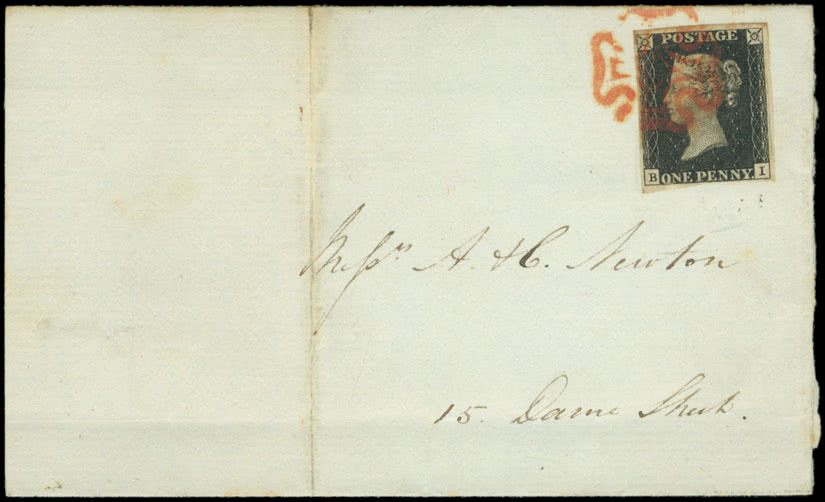 POSTAGE
B ONE PENNY I
Messrs A. & C. Newton
15. Dame Street.